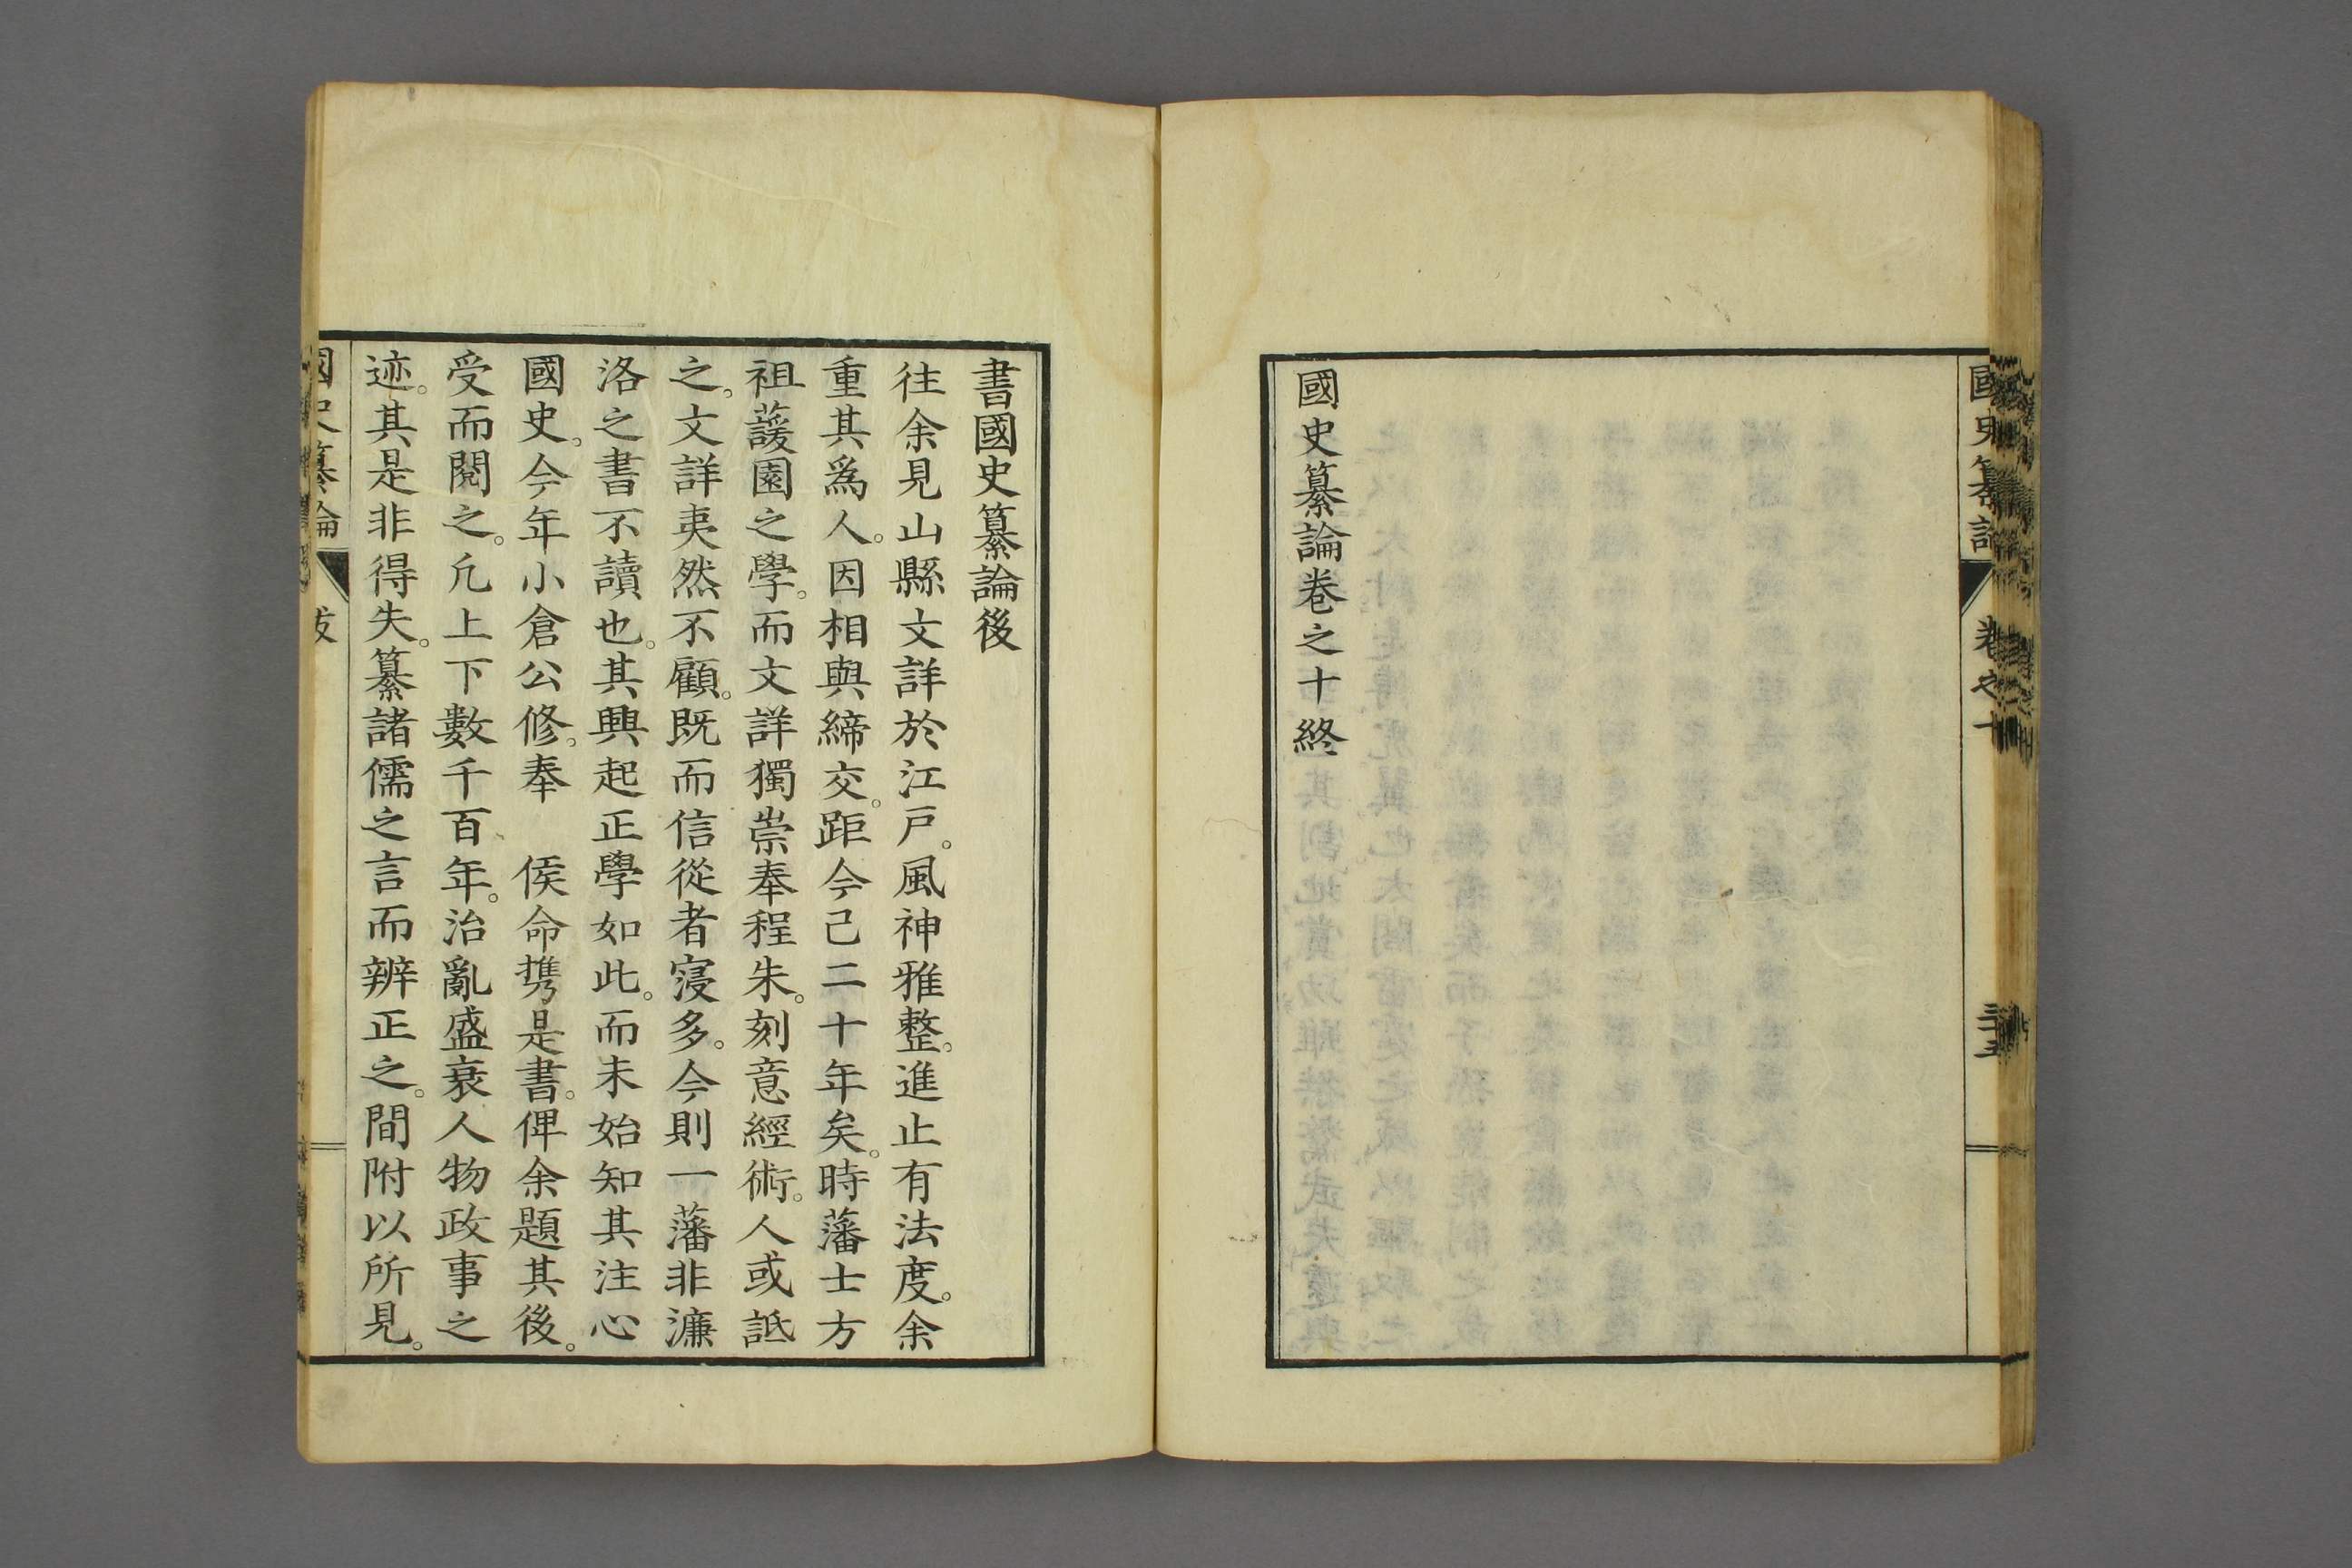 國史纂論
卷之十
國史纂論卷之十終
書國史纂論後
往余見山縣文詳於江戸。風神雅整。進止有法度。余
重其爲人。因相與締交。距今已二十年矣。時藩士方
祖蘐園之學。而文詳獨崇奉程朱。刻意經術。人或詆
之。文詳夷然不顧。既而信從者寖多。今則一藩非濂
洛之書不讀也。其興起正學如此。而未始知其注心
國史。今年小倉公修。奉　侯命携是書。俾余題其後。
受而閱之。凢上下數千百年。治亂盛衰人物政事之
迹。其是非得失。纂諸儒之言而辨正之。間附以所見。
國史纂論
跋